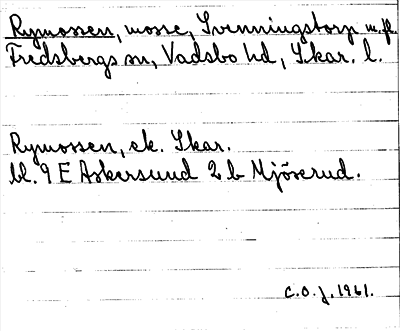 Rymossen, mosse, Svenningstorp m.fl.
Fredsbergs sn, Vadsbo hd, Skar. l.
Rymossen, ek. Skar.
bl. 9 E Askersund 2 b Mjöserud.
C.O.J. 1961.